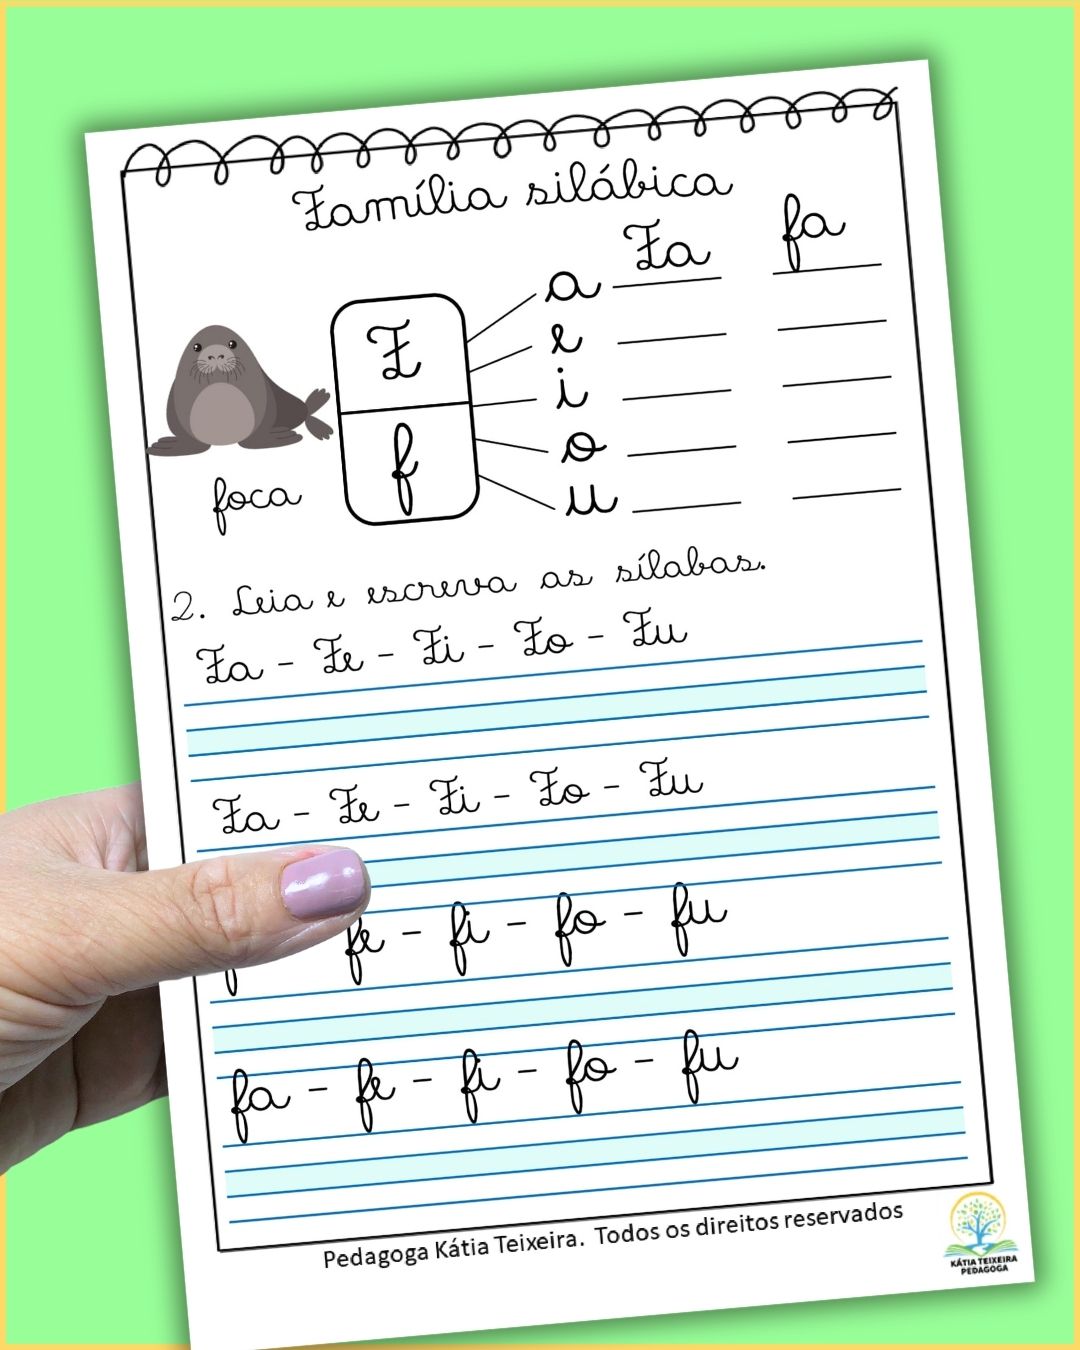 Família silábica
Fa fa
a
e
F
i
f
o
foca
u
2. Leia e escreva as sílabas.
Fa - Fe - Fi - Fo - Fu
Fa - Fe - Fi - Fo - Fu
fe - fi - fo - fu
fa - fe - fi - fo - fu
Pedagoga Kátia Teixeira. Todos os direitos reservados
KÁTIA TEIXEIRA
PEDAGOGA